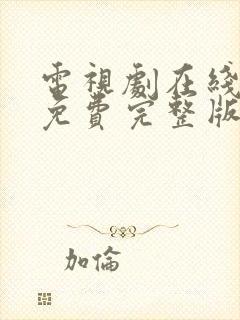 電視劇在綫
免費完整版
加倫